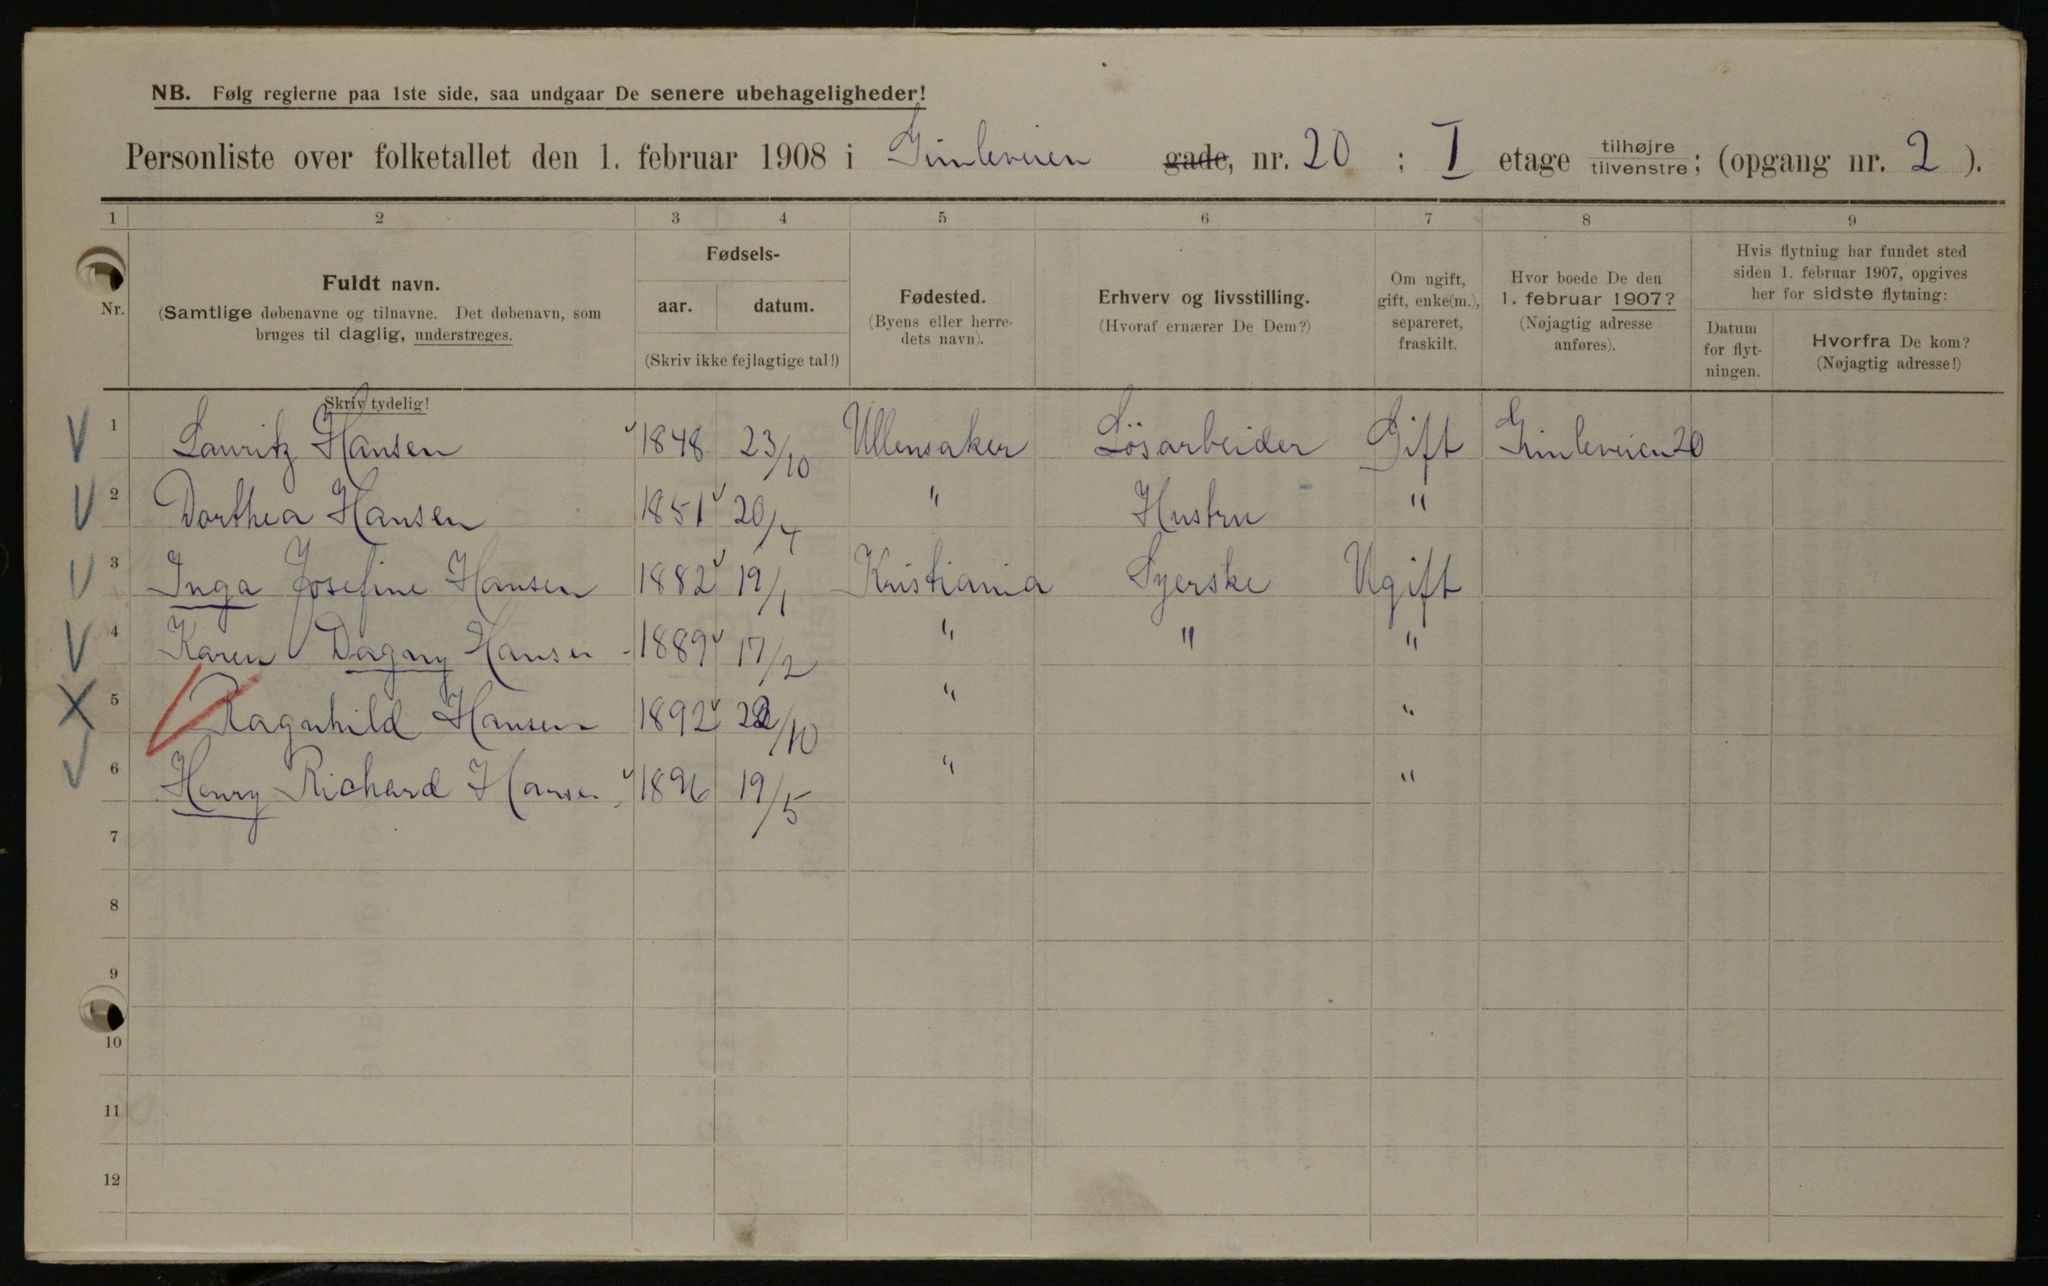 NB. Følg reglerne paa 1ste side, saa undgaar De senere ubehageligheder!
Personliste over folketallet den 1. februar 1908 i Gimleveien gade, nr. 20 ; I etage tilhøjre tilvenstre; (opgang nr. 2 ).
1 2 3 4 5 6 7 8 9
Nr.
Fuldt navn.
(Samtlige døbenavne og tilnavne. Det døbenavn, som
bruges til daglig, understreges.
Fødsels-
aar. datum.
(Skriv ikke fejlagtige tal!)
Fødested.
(Byens eller herre-
dets navn).
Erhverv og livsstilling.
(Hvoraf ernærer De Dem?)
Om ugift,
gift, enke(m.),
separeret,
fraskilt.
Hvor boede De den
1. februar 1907?
(Nøjagtig adresse
anføres).
Hvis flytning har fundet sted
siden 1. februar 1907, opgives
her for sidste flytning:
Datum
for flyt-
ningen.
Hvorfra De kom?
(Nøjagtig adresse!)
Skriv tydelig!
1 Lauritz Hansen 1848 23/10 Ullensaker Løsarbeider Gift Gimleveien 20
2 Dorthea Hansen 1851 20/4 " Hustru "
3 Inga Josefine Hansen 1882 19/1 Kristiania Syerske Ugift
4 Karen Dagny Hansen 1889 17/2 " " "
5 Ragnhild Hansen 1892 22/10 " "
6 Henry Richard Hansen 1896 19/5 " "
7
8
9
10
11
12